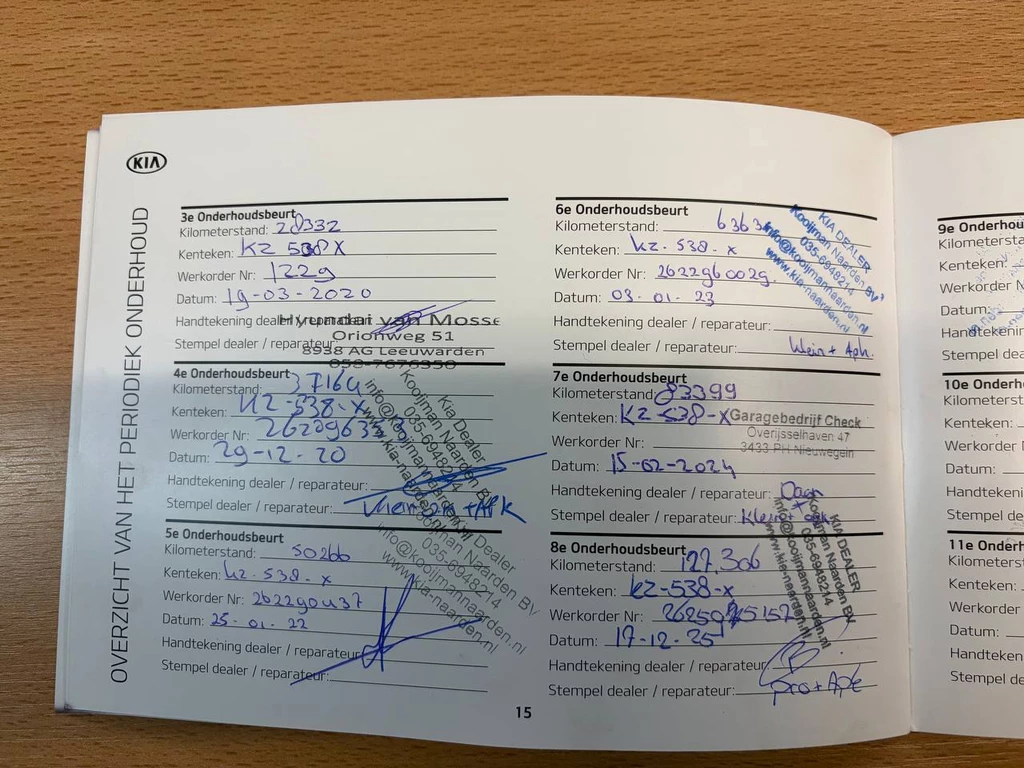 KIA
OVERZICHT VAN HET PERIODIEK ONDERHOUD
3e Onderhoudsbeurt
Kilometerstand: 28332
Kenteken: KZ 538X
Werkorder Nr: 1229
Datum: 19-03-2020
Handtekening dealer / reparateur:
Hyundai van Mosse
Orionweg 51
Stempel dealer / reparateur:
8938 AG Leeuwarden
058-7676350
4e Onderhoudsbeurt
Kilometerstand: 37164
Kenteken: KZ-538-X
Werkorder Nr:
Datum: 29-12-20
Handtekening dealer / reparateur:
Stempel dealer / reparateur: + APK
Kia Dealer
Kooijman Naarden BV
035-6948214
info@kooijmannaarden.nl
www.kia-naarden.nl
5e Onderhoudsbeurt
Kilometerstand: 50266
Kenteken: KZ-538-X
Werkorder Nr: 262290437
Datum: 25-01-22
Handtekening dealer / reparateur:
Stempel dealer / reparateur:
Kia Dealer
Kooijman Naarden BV
035-6948214
info@kooijmannaarden.nl
www.kia-naarden.nl
15
6e Onderhoudsbeurt
Kilometerstand:
Kenteken: KZ-538-X
Werkorder Nr: 2622960029
Datum: 03-01-23
Handtekening dealer / reparateur:
Stempel dealer / reparateur: Klein + Apk
KIA DEALER
Kooijman Naarden BV
035-6948214
info@kooijmannaarden.nl
www.kia-naarden.nl
7e Onderhoudsbeurt
Kilometerstand: 83399
Kenteken: KZ-538-X
Garagebedrijf Check
Overijsselhaven 47
3433 PH Nieuwegein
Werkorder Nr:
Datum: 15-02-2024
Handtekening dealer / reparateur:
Stempel dealer / reparateur: Klein + apk
8e Onderhoudsbeurt
Kilometerstand: 127.306
Kenteken: KZ-538-X
Werkorder Nr:
Datum: 17-12-25
Handtekening dealer / reparateur:
Stempel dealer / reparateur: pro + Apk
KIA DEALER
Kooijman Naarden BV
035-6948214
info@kooijmannaarden.nl
www.kia-naarden.nl
9e Onderhou
Kilometersta
Kenteken:
Werkorder N
Datum:
Handtekenin
Stempel dea
10e Onderh
Kilometerst
Kenteken:
Werkorder
Datum:
Handteken
Stempel de
11e Onderh
Kilometerst
Kenteken:
Werkorder
Datum:
Handteken
Stempel de